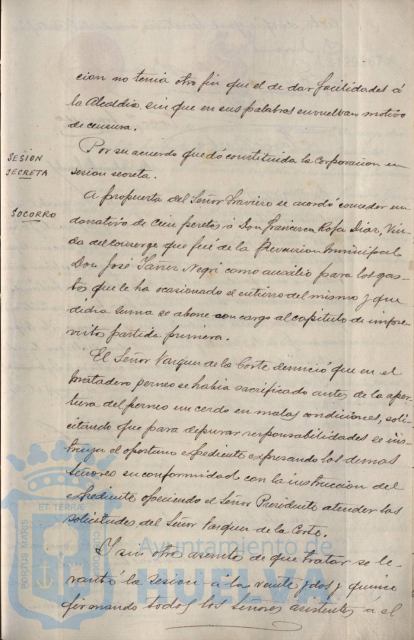 cion no tenia otro fin que el de dar facilidades á
la Alcaldia sin que en sus palabras envuelvan motivo
de censura.
Por su acuerdo quedó constituida la Corporacion en
sesion secreta.
SESION
SECRETA
A propuesta del Señor Traviero se acordó conceder un
donativo de cien pesetas á Don Francisca Rofa Diaz, Viu
da del conserge que fué de la Prevencion Municipal
Don José Yañez Negri como auxilio para los gas-
tos que le ha ocasionado el entierro del mismo y que
dicha suma se abone con cargo al capitulo de impre
vistos partida primera.
SOCORRO
El Señor Vazquez de la Corte denunció que en el
matadero porneo se habia sacrificado antes de la aper
tura del porneo un cerdo en malas condiciones, soli-
citando que para depurar responsabilidades se ins-
truya el oportuno expediente expresando los demas
Señores su conformidad con la instruccion del
expediente ofreciendo el Señor Presidente atender las
solicitudes del Señor Vazquez de la Corte.
Y sin otro asunto de que tratar se le-
vantó la sesion á las veinte y dos y quince
firmando todos los Señores asistentes a el
PORTUS MARIS
ET TERRAE
CUSTODIA
Ayuntamiento de
HUELVA